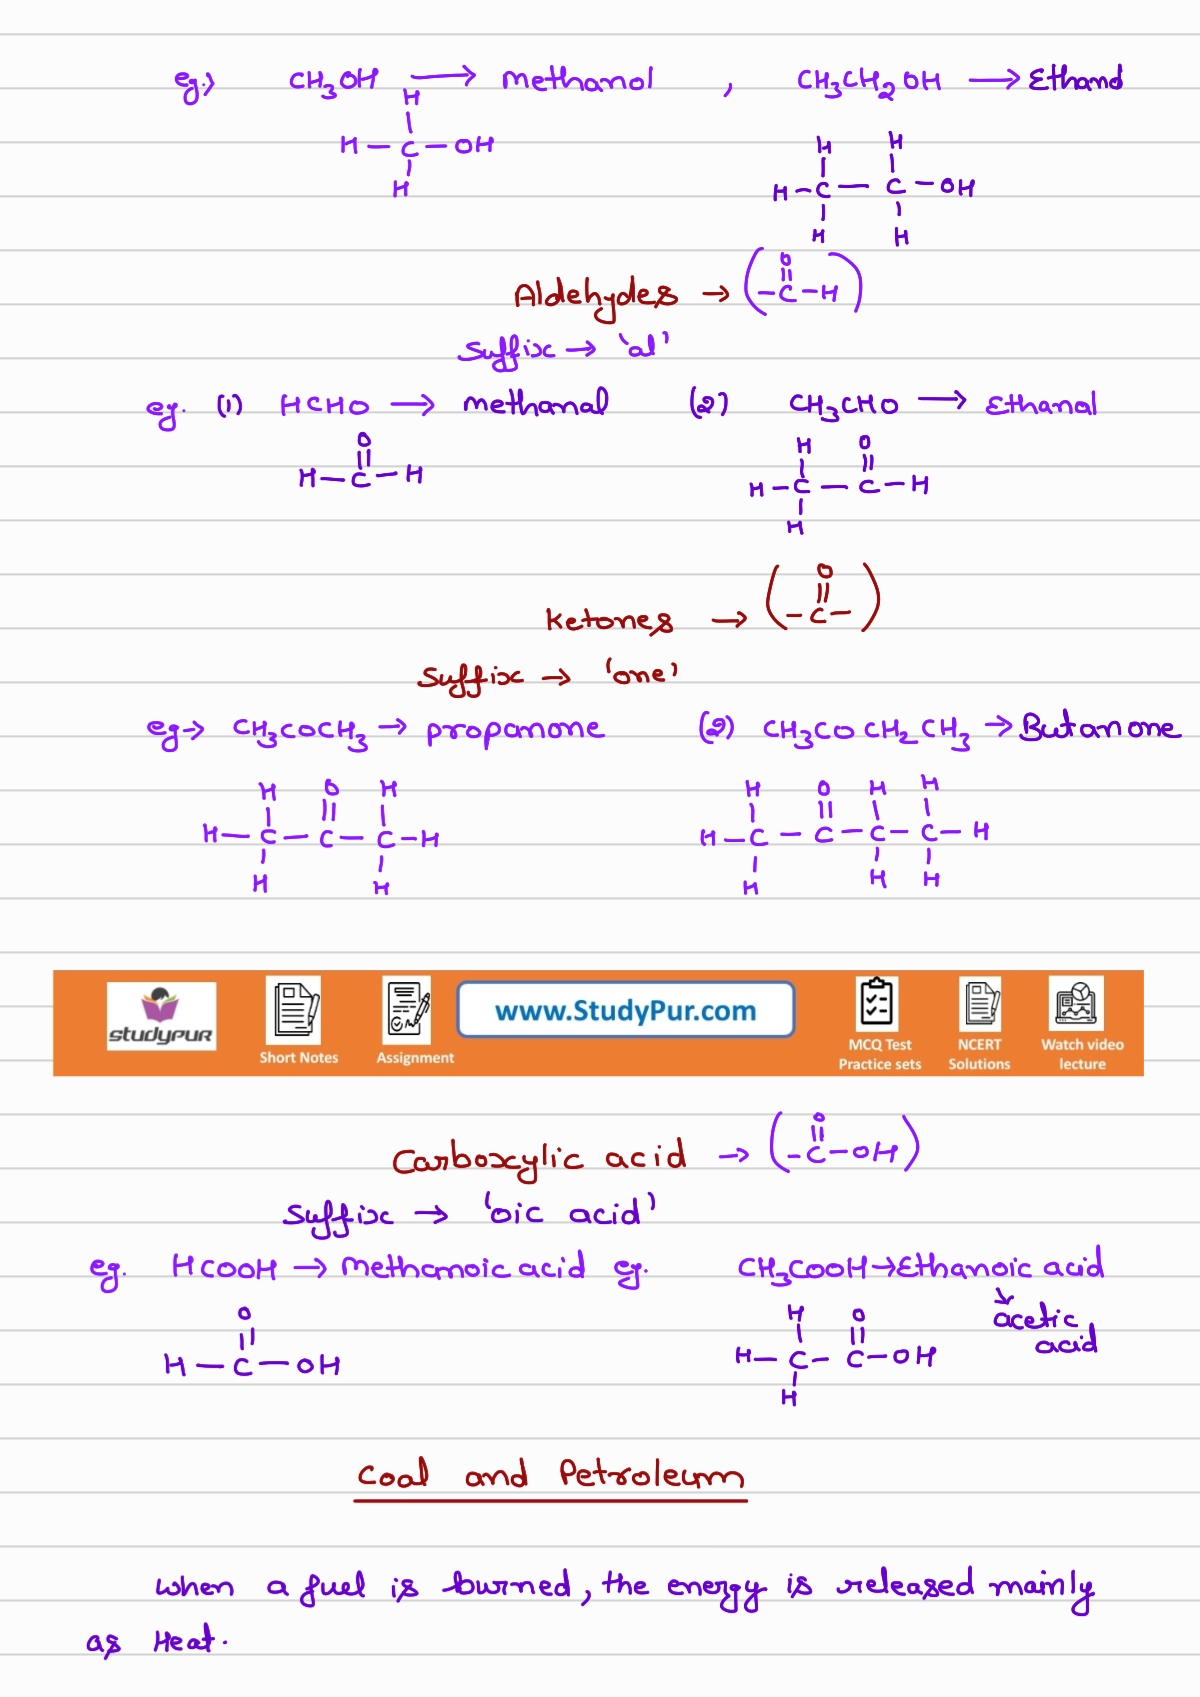 eg.> CH3OH → methanol , CH3CH2OH → Ethanol
H
H — C — OH
H
H H
H – C — C – OH
H H
Aldehydes → ( O
– C – H )
Suffix → 'al'
eg. (1) HCHO → methanal (2) CH3CHO → Ethanal
O
H – C – H
H O
H – C — C – H
H
Ketones → ( O
– C – )
Suffix → 'one'
eg → CH3COCH3 → propanone (2) CH3COCH2CH3 → Butanone
H O H
H — C — C — C – H
H H
H O H H
H – C – C – C – C – H
H H H
studypur
Short Notes
Assignment
www.StudyPur.com
MCQ Test
Practice sets
NCERT
Solutions
Watch video
lecture
Carboxylic acid → ( O
– C – OH )
Suffix → 'oic acid'
eg. HCOOH → Methanoic acid eg. CH3COOH → Ethanoic acid
acetic
acid
O
H — C — OH
H O
H — C – C – OH
H
Coal and Petroleum
when a fuel is burned, the energy is released mainly
as Heat.